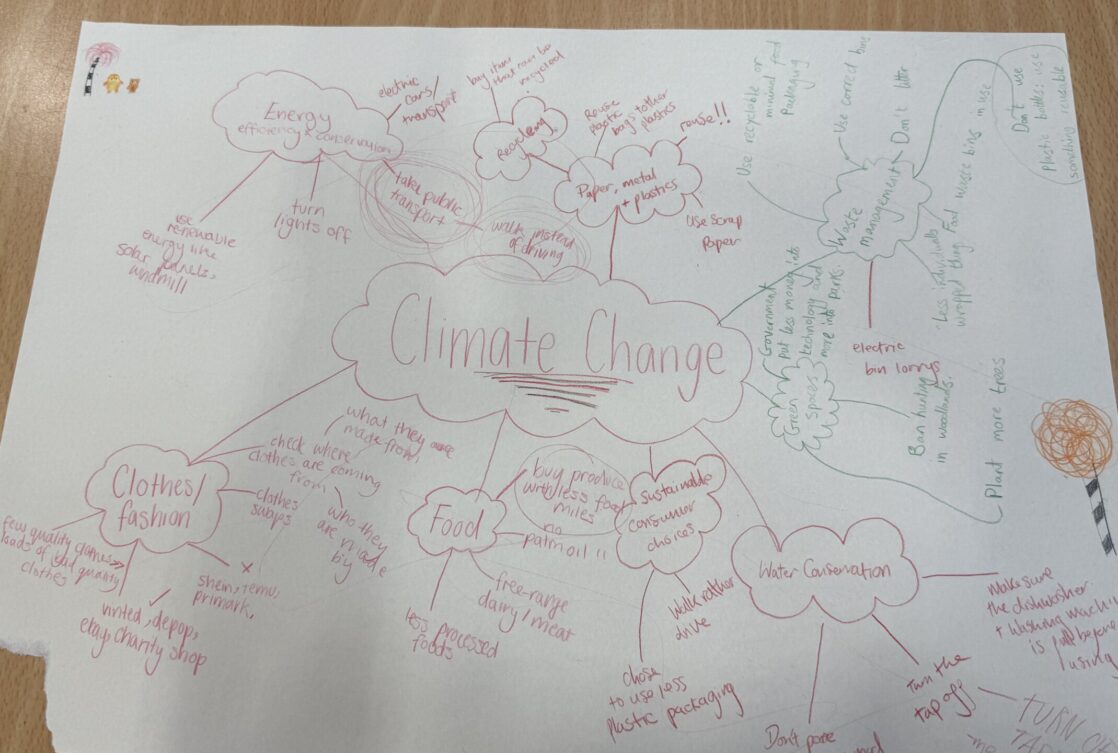 Energy
efficiency & conservation
electric
cars/
transport
take public
transport
walk instead
of driving
turn
lights off
use
renewable
energy like
solar panels,
windmill
buy items
that can be
recycled
Recycling
Reuse
plastic
bags + other
plastics
reuse!!
Paper, metal
+ plastics
Use scrap
Paper
Use recyclable or
minimal food
Packaging
Use correct bins
Don't litter
Waste
management
Food waste bins in use
Less individually
wrapped things
Don't use
Plastic bottles: use
something reusable
electric
bin lorrys
Climate Change
Government
put less money into
technology and
more into parks.
Green
Spaces
Ban hunting
in woodlands.
Plant more trees
Clothes/
fashion
check where
clothes are coming
from
what they are
made from,
who they
are made
by
clothes
swaps
few quality clothes >>
loads of bad quality
clothes
vinted, depop,
ebay, charity shop
shein, temu,
primark,
Food
buy produce
with less food
miles
no
palm oil !!
free-range
dairy/meat
less processed
foods
Sustainable
consumer
choices
Walk rather
drive
chose
to use less
plastic packaging
Water Conservation
Make sure
the dishwasher
+ washing machine
is full before
using
Turn the
tap off
TURN
Don't